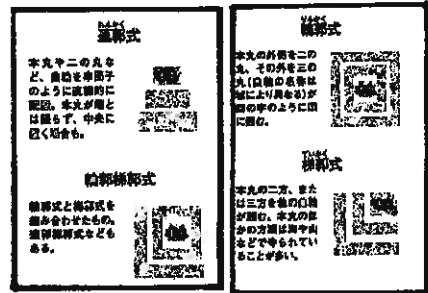 れんかく
連郭式
本丸や二の丸な
ど、曲輪を串団子
のように直線的に
配置。本丸が端と
は限らず、中央に
置く場合も。
輪郭梯郭式
輪郭式と梯郭式を
組み合わせたもの。
連郭梯郭式なども
ある。
りんかく
輪郭式
本丸の外側を二の
丸、その外を三の
丸(曲輪の名称は
城により異なる)が
回の字のように囲
に囲む。
梯郭式
本丸の二方、また
は三方を他の曲輪
が囲む。本丸のほ
かの方面は海や山
などで守られてい
ることが多い。